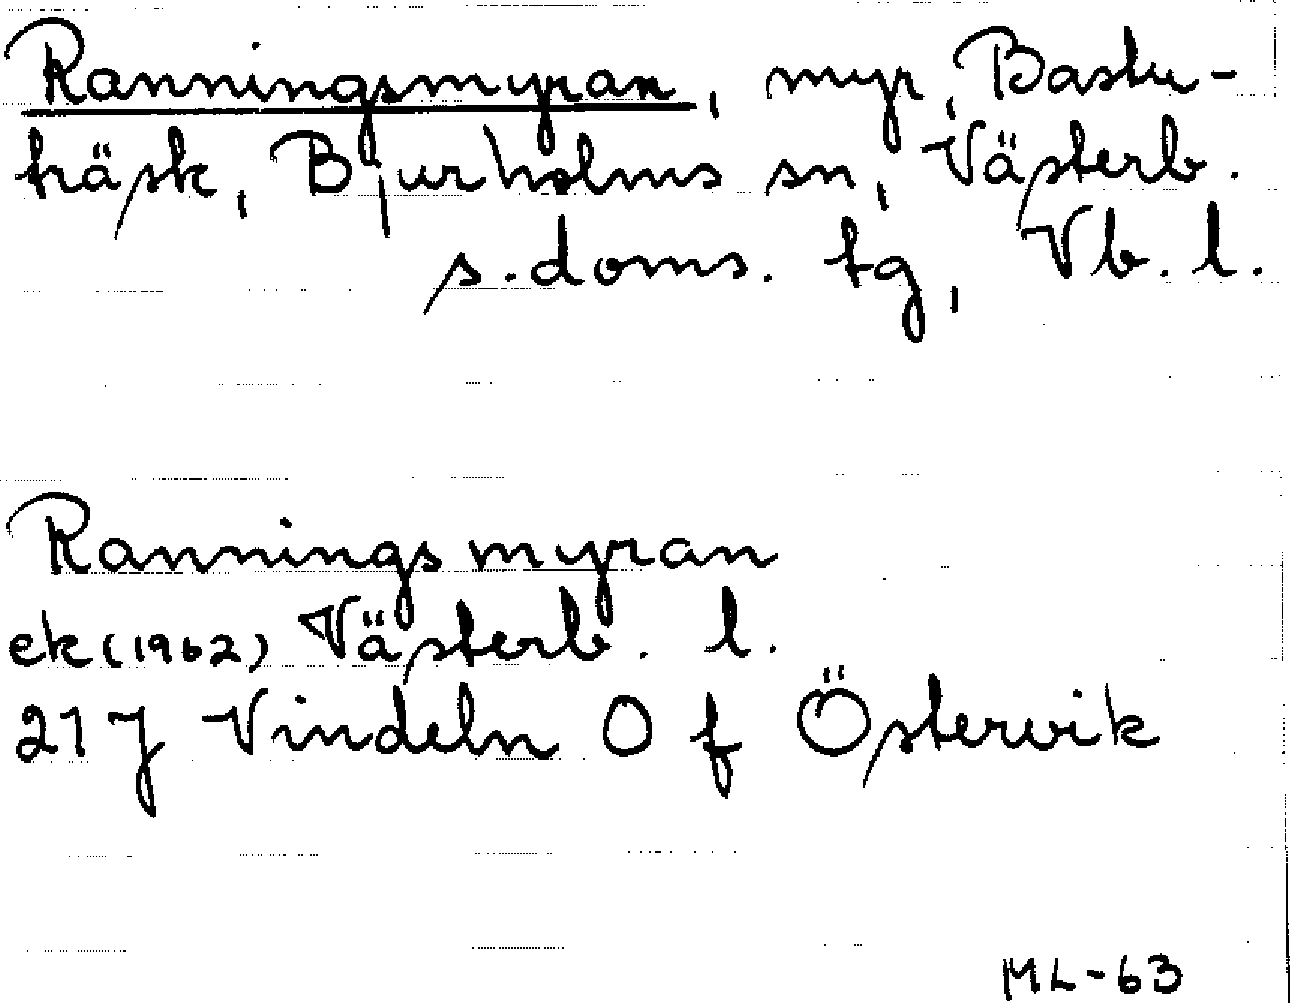 Ranningsmyran, myr, Bastu-
träsk, Bjurholms sn, Västerb.
s. doms. tg, Vb. l.
Ranningsmyran
ek (1962) Västerb. l.
21 J Vindeln O f Östervik
ML-63